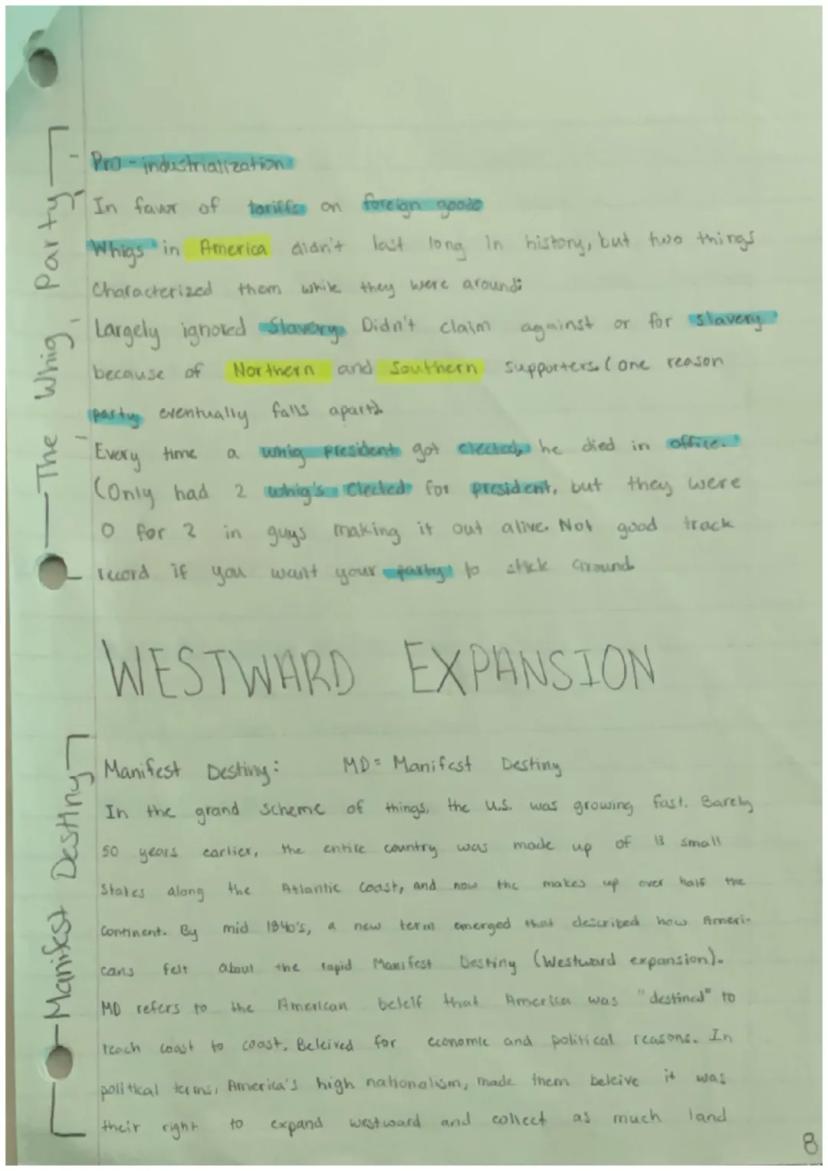 The Whig Party
- Pro-industrialization
- In favor of tariffs on foreign goods
Whigs in America didn't last long in history, but two things
Characterized them while they were around:
- Largely ignored Slavery. Didn't claim against or for slavery
because of Northern and Southern supporters. (one reason
party eventually falls apart).
- Every time a whig president got elected, he died in office.
(Only had 2 whig's elected for president, but they were
0 for 2 in guys making it out alive. Not good track
record if you want your party to stick around
WESTWARD EXPANSION
Manifest Destiny
Manifest Destiny: MD= Manifest Destiny
In the grand scheme of things, the U.S. was growing fast. Barely
50 years earlier, the entire country was made up of 13 small
States along the Atlantic Coast, and now the makes up over half the
Continent. By mid 1840's, a new term emerged that described how Ameri-
cans felt about the rapid Manifest Destiny (Westward expansion).
MD refers to the American beleif that America was "destined" to
reach coast to coast. Beleived for economic and political reasons. In
political terms, America's high nationalism, made them beleive it was
their right to expand westward and collect as much land
8